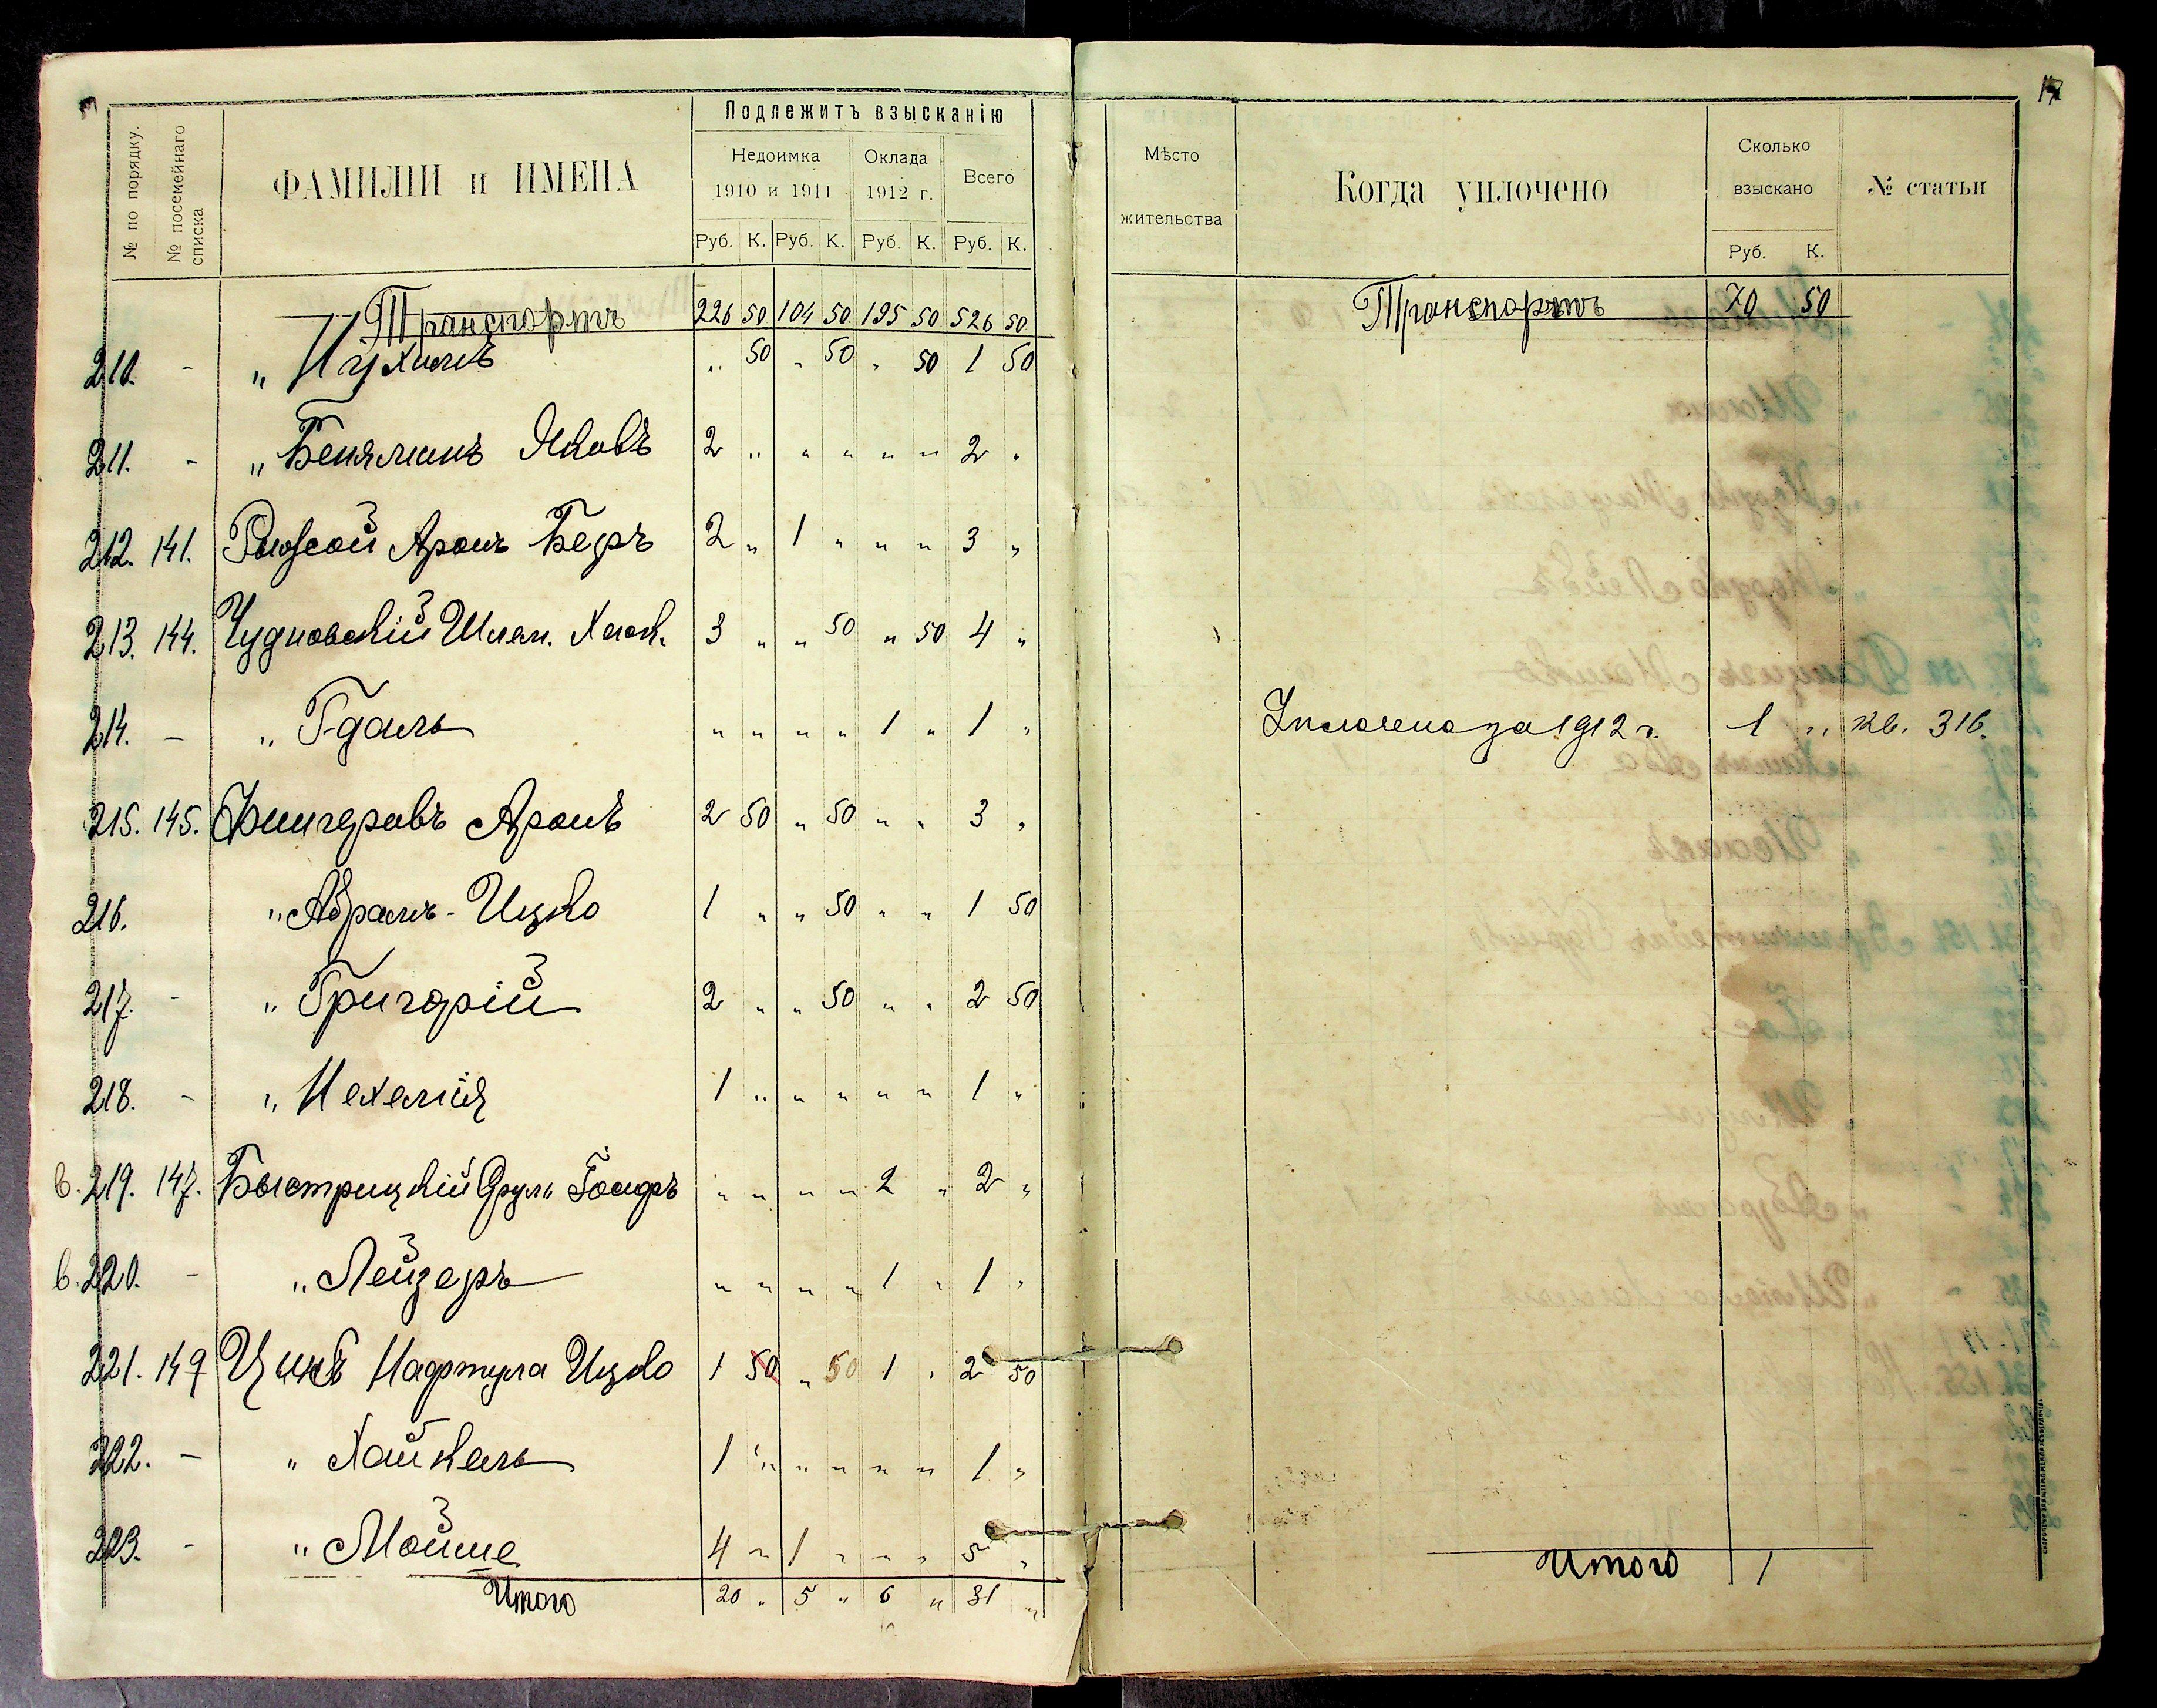 17
Подлежитъ взысканію
№ по порядку.
№ посемейнаго списка
ФАМИЛІИ и ИМЕНА
Недоимка 1910 и 1911
Оклада 1912 г.
Всего
Руб. К. Руб. К. Руб. К. Руб. К.
Мѣсто жительства
Когда уплочено
Сколько взыскано
Руб. К.
№ статьи
Транспортъ 226 50 104 50 195 50 526 50 Транспортъ 70 50
210. - „ Нухимъ „ 50 „ 50 „ 50 1 50
211. - „ Беняминъ Яковъ 2 „ „ „ „ „ 2 „
212. 141. Аронъ Беръ 2 „ 1 „ „ „ 3 „
213. 144. Чудновскій Шлем. Хаск. 3 „ „ 50 „ 50 4 „
214. - „ Гдаль „ „ „ „ 1 „ 1 „ Уплочено за 1912 г. 1 „ кв. 316.
215. 145. Фингеровъ Аронъ 2 50 „ 50 „ „ 3 „
216. „ Абрамъ-Ицко 1 „ „ 50 „ „ 1 50
217. - „ Григорій 2 „ „ 50 „ „ 2 50
218. - „ Нехемія 1 „ „ „ „ „ 1 „
в. 219. 147. Быстрицкій Сруль Іосифъ „ „ „ „ 2 „ 2 „
в. 220. - „ Лейзеръ „ „ „ „ 1 „ 1 „
221. 149 Цинъ Нафтула Ицко 1 50 „ 50 1 „ 2 50
222. - „ Хайкель 1 „ „ „ „ „ 1 „
223. - „ Мойше 4 „ 1 „ „ „ 5 „
Итого 20 „ 5 „ 6 „ 31 „ Итого 1